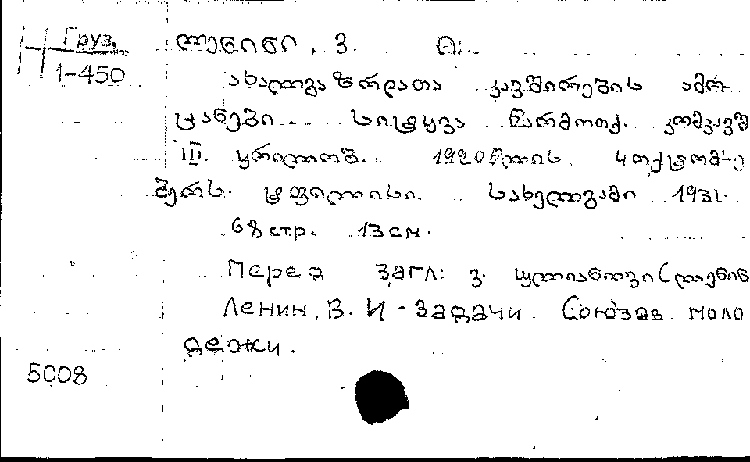 Груз.
1-450
ლენინი, ვ. ი.
ახალგაზრდათა კავშირების ამო-
ცანები სიტყვა წარმოთქ. კომკავშ
III. ყრილობ. 1920 წლის 4 ოქტომ-
ბერს. ტფილისი. სახელგამი 1931.
68 стр. 13 см.
Перед загл: ვ. ულიანოვი (ლენინ
Ленин, В. И - Задачи Союзов моло
дежи.
5008